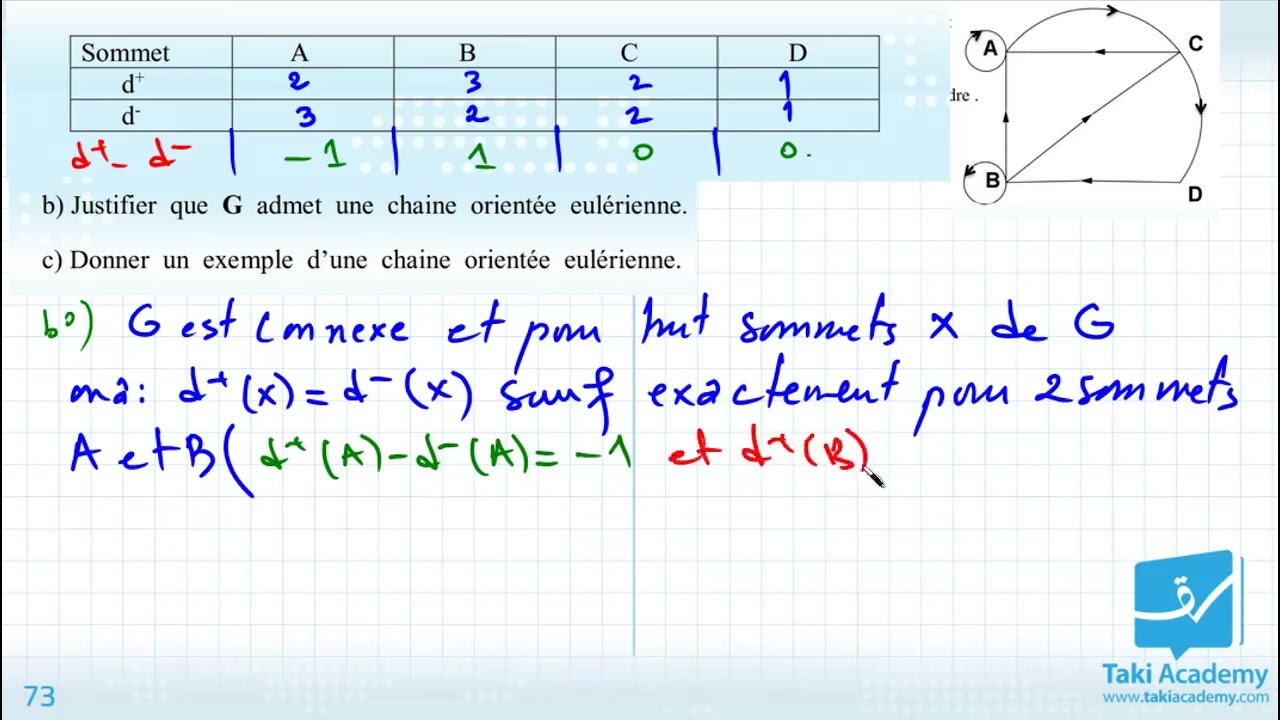 Sommet A B C D
d⁺ 2 3 2 1
d⁻ 3 2 2 1
d⁺- d⁻ -1 1 0 0.
dre .
A C
B D
b) Justifier que G admet une chaine orientée eulérienne.
c) Donner un exemple d'une chaine orientée eulérienne.
b°) G est connexe et pour tout sommets x de G
on a: d⁺(x) = d⁻(x) sauf exactement pour 2 sommets
A et B ( d⁺(A) - d⁻(A) = -1 et d⁺(B)
Taki Academy
www.takiacademy.com
73